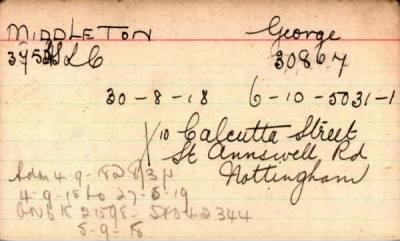 MIDDLETON George
30867
30-8-18 6-10-5031-1
10 Calcutta Street
St Annswell Rd
Nottingham
Adm 4-9-18
4-9-18 to 27-5-19
42344
5-9-18